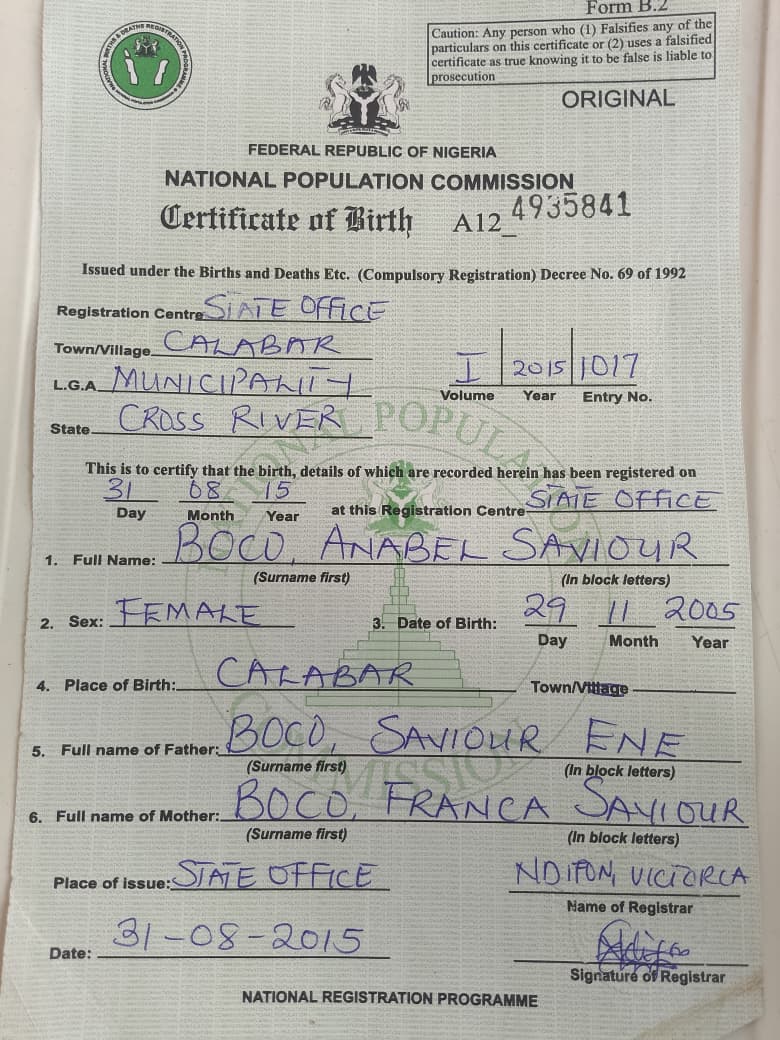 Form B.2
Caution: Any person who (1) Falsifies any of the
particulars on this certificate or (2) uses a falsified
certificate as true knowing it to be false is liable to
prosecution
ORIGINAL
FEDERAL REPUBLIC OF NIGERIA
NATIONAL POPULATION COMMISSION
Certificate of Birth A12_4935841
Issued under the Births and Deaths Etc. (Compulsory Registration) Decree No. 69 of 1992
Registration Centre STATE OFFICE
Town/Village CALABAR
L.G.A. MUNICIPALITY
I 2015 1017
Volume Year Entry No.
State CROSS RIVER
This is to certify that the birth, details of which are recorded herein has been registered on
31 08 15 at this Registration Centre STATE OFFICE
Day Month Year
1. Full Name: BOCO, ANABEL SAVIOUR
(Surname first) (In block letters)
2. Sex: FEMALE 3. Date of Birth: 29 11 2005
Day Month Year
4. Place of Birth: CALABAR Town/Village
5. Full name of Father: BOCO, SAVIOUR ENE
(Surname first) (In block letters)
6. Full name of Mother: BOCO, FRANCA SAVIOUR
(Surname first) (In block letters)
Place of issue: STATE OFFICE NDIFON, VICTORIA
Name of Registrar
Date: 31-08-2015
Signature of Registrar
NATIONAL REGISTRATION PROGRAMME
NATIONAL POPULATION COMMISSION